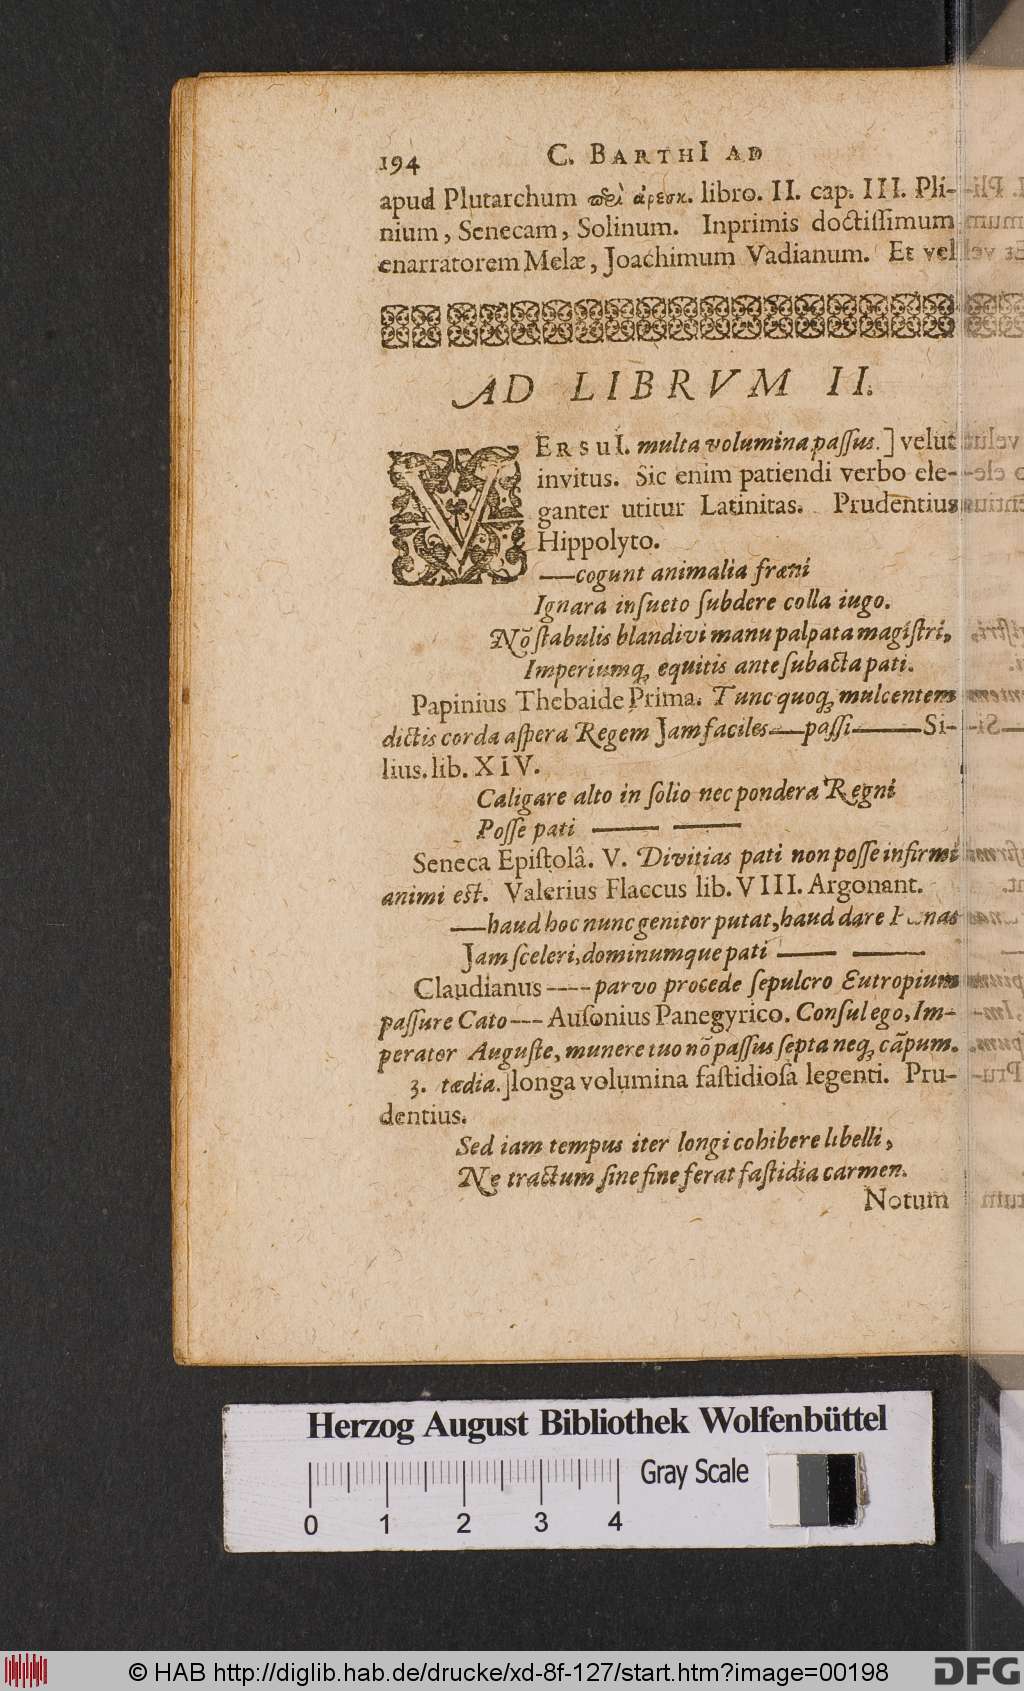 194 C. BARTHI AD
apud Plutarchum ϖεὶ ἀρεσκ. libro. II. cap. III. Pli-
nium, Senecam, Solinum. Inprimis doctissimum
enarratorem Melæ, Joachimum Vadianum. Et vel
AD LIBRVM II.
VERSUI. multa volumina passus.] velut
invitus. Sic enim patiendi verbo ele-
ganter utitur Latinitas. Prudentius
Hippolyto.
—cogunt animalia fræni
Ignara insueto subdere colla iugo.
Nõ stabulis blandivi manu palpata magistri,
Imperiumq; equitis ante subacta pati.
Papinius Thebaide Prima. Tunc quoq; mulcentem
dictis corda aspera Regem Jam faciles—passi—Si-
lius. lib. XIV.
Caligare alto in solio nec pondera Regni
Posse pati — —
Seneca Epistolâ. V. Divitias pati non posse infirmi
animi est. Valerius Flaccus lib. VIII. Argonant.
—haud hoc nunc genitor putat, haud dare nas
Jam sceleri, dominumque pati — —
Claudianus ----parvo procede sepulcro Eutropium
passure Cato--- Ausonius Panegyrico. Consul ego, Im-
perator Auguste, munere tuo nõ passus septa neq; cãpum.
3. tædia.] longa volumina fastidiosa legenti. Pru-
dentius.
Sed iam tempus iter longi cohibere libelli,
Ne tractum sine fine ferat fastidia carmen.
Notum
Herzog August Bibliothek Wolfenbüttel
Gray Scale
0 1 2 3 4
© HAB http://diglib.hab.de/drucke/xd-8f-127/start.htm?image=00198
DFG